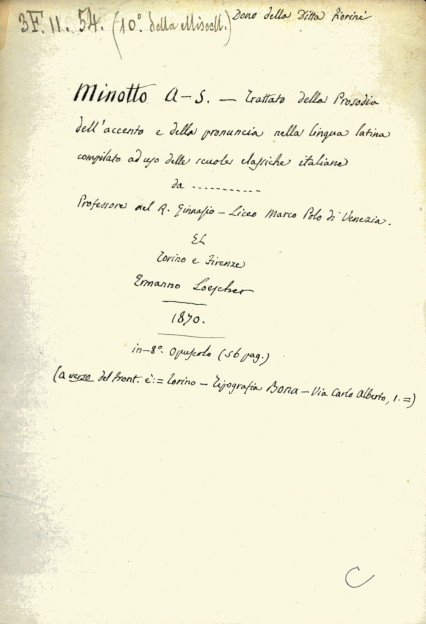 3F. 11. 54. (10°. della Miscell.) Dono della Ditta Fiorini
Minotto A-S. — Trattato della Prosodia
dell'accento e della pronuncia nella lingua latina
compilato ad uso delle scuole classiche italiane
da ----------
Professore nel R. Ginnasio – Liceo Marco Polo di Venezia.
EL
Torino e Firenze
Ermanno Loescher
1870.
in-8°. Opuscolo (56 pag.)
(a verso del front. è := Torino – Tipografia Bona – Via Carlo Alberto, 1. =)
C